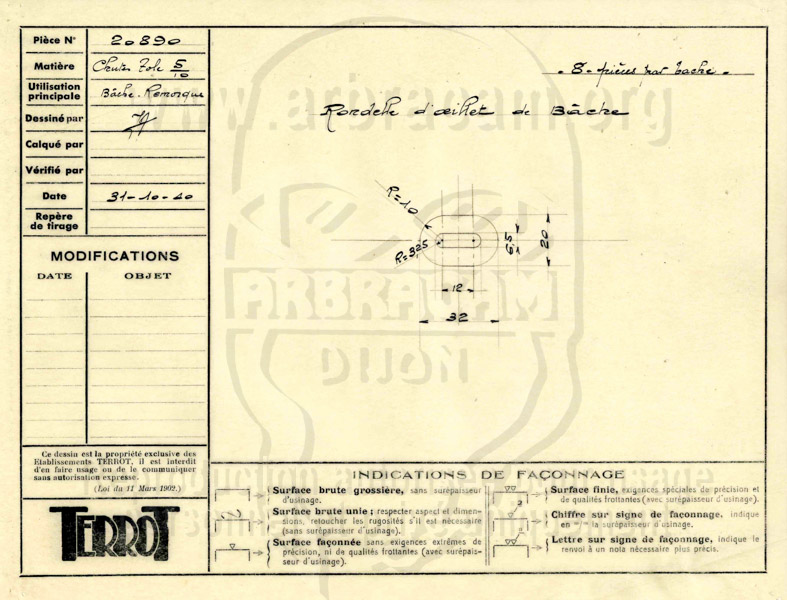 Pièce N° 20890
Matière Chutes Tole 5/10
Utilisation
principale Bâche. Remorque
Dessiné par
Calqué par
Vérifié par
Date 31-10-40
Repère
de tirage
MODIFICATIONS
DATE OBJET
Ce dessin est la propriété exclusive des
Etablissements TERROT, il est interdit
d'en faire usage ou de le communiquer
sans autorisation expresse.
(Loi du 11 Mars 1902.)
TERROT
8 - pièces par bache.
Rondelle d'œillet de Bâche
R=10
R=3,25
6,5
20
12
32
www.arbracam.org
ARBRACAM
DIJON
INDICATIONS DE FAÇONNAGE
Surface brute grossière, sans surépaisseur
d'usinage.
Surface brute unie ; respecter aspect et dimen-
sions, retoucher les rugosités s'il est nécessaire
(sans surépaisseur d'usinage).
Surface façonnée sans exigences extrêmes de
précision, ni de qualités frottantes (avec surépais-
seur d'usinage).
Surface finie, exigences spéciales de précision et
de qualités frottantes (avec surépaisseur d'usinage).
Chiffre sur signe de façonnage, indique
en la surépaisseur d'usinage.
Lettre sur signe de façonnage, indique le
renvoi à un nota nécessaire plus précis.